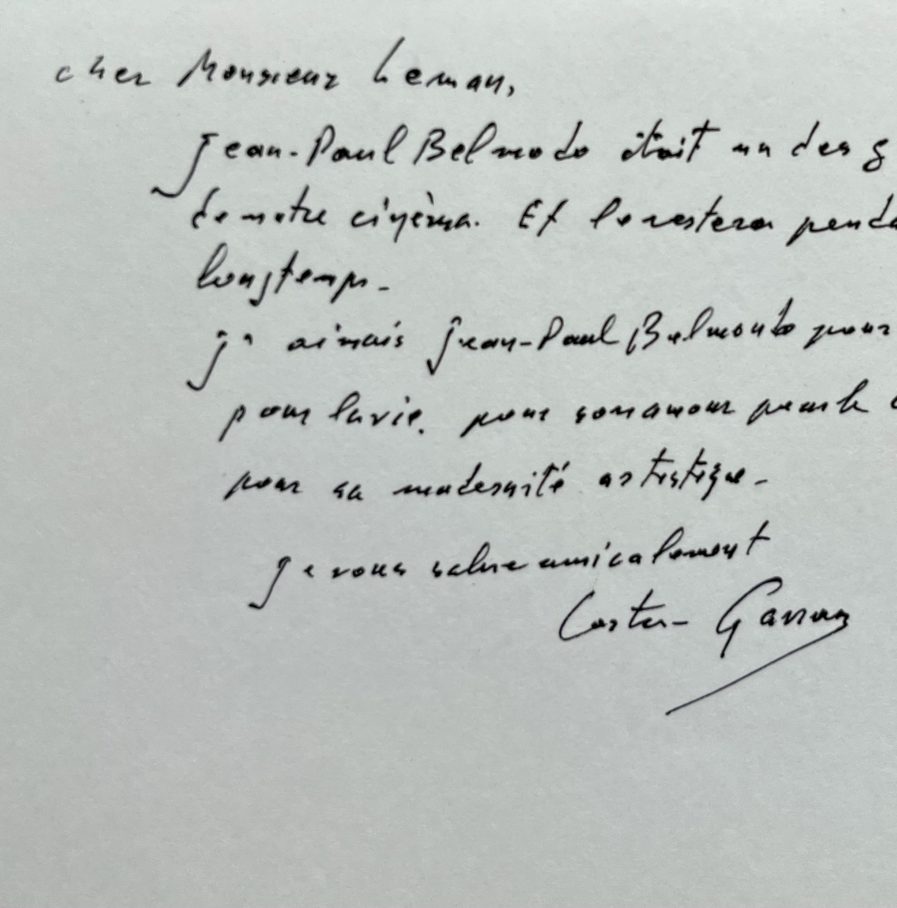 cher Monsieur Leman,
Jean-Paul Belmodo était un des g
de notre cinéma. Et le restera penda
longtemps.
J'aimais Jean-Paul Belmondo pour
pour la vie. pour son amour pour le
pour sa modernité artistique.
Je vous salue amicalement
Costa-Gavras